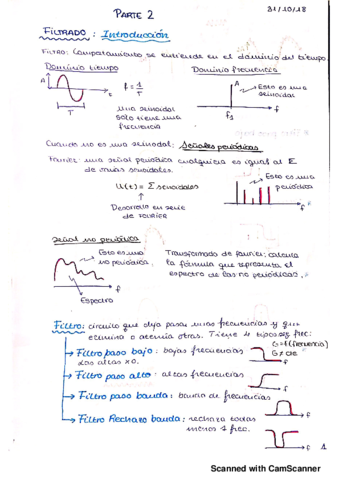 PARTE 2
31/10/18
FILTRADO: Introducción
FILTRO: Comportamiento se entiende en el dominio del tiempo.
Dominio tiempo
Dominio frecuencia
A
T
t
f = 1/T
una sinoidal
solo tiene una
frecuencia
A
Esto es una
senoidal
f1
f
Cuando no es una senoidal: Señales periódicas
Fourier: una señal periódica cualquiera es igual al Σ
de varias sinusoidales.
U(t) = Σ senoidales
Desarrollo en serie
de Fourier
Esto es una
periódica
f
Señal no periódica
Esto es una
no periódica.
f
Espectro
Transformada de Fourier: calcula
la fórmula que representa el
espectro de las no periódicas.
Filtro: circuito que deja pasar unas frecuencias y que
elimina o atenúa otras. Tiene 4 tipos seg. frec:
G=f(frecuencia)
G≠cte
→ Filtro paso bajo: bajas frecuencias
Las altas x0.
f
→ Filtro paso alto: altas frecuencias
f
→ Filtro paso banda: banda de frecuencias
f
→ Filtro Rechazo banda: rechazo todas
menos 1 frec.
f
1
Scanned with CamScanner